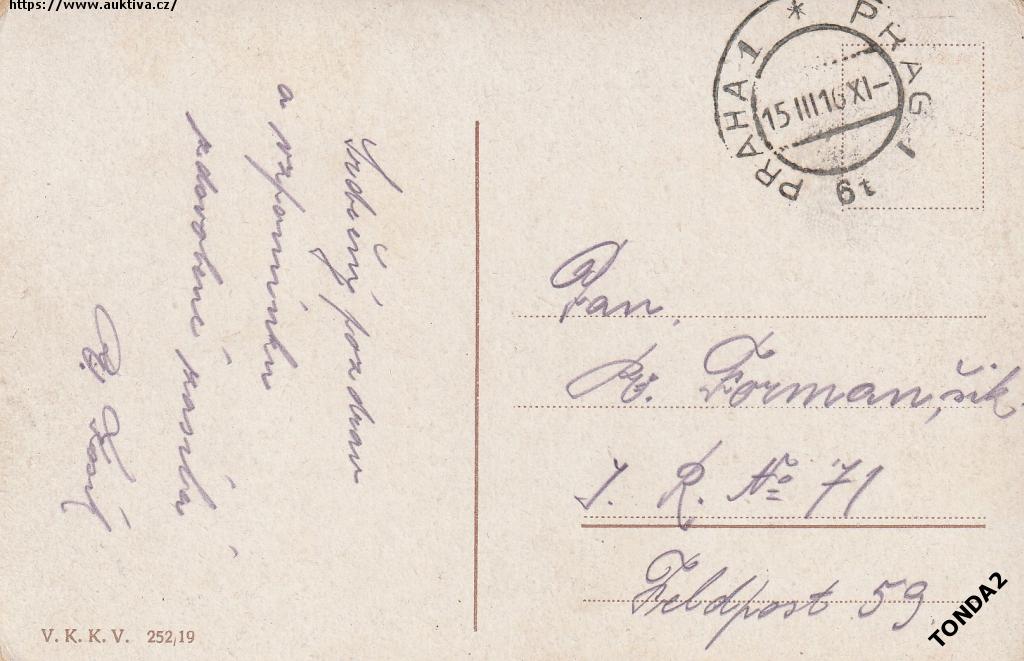 https://www.auktiva.cz/
PRAHA 1 * PRAG 1
15 III 16 XI-
19
Srdečný pozdrav
a vzpomínku
zasílá
Pan
Forman, šik.
I. R. No 71
Feldpost 59
V. K. K. V. 252/19
TONDA2